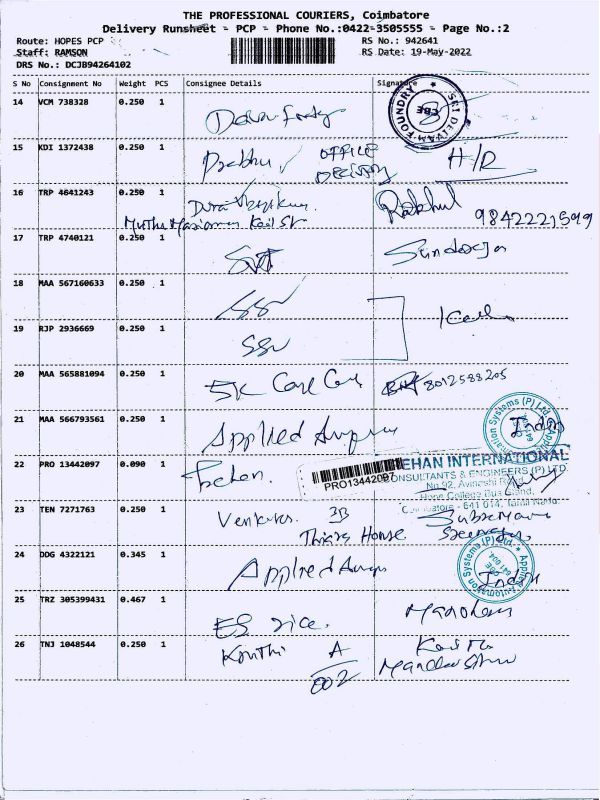 THE PROFESSIONAL COURIERS, Coimbatore
Delivery Runsheet - PCP - Phone No.:0422-3505555 - Page No.:2
Route: HOPES PCP
RS No.: 942641
Staff: RAMSON
RS Date: 19-May-2022
DRS No.: DCJB94264102
S No Consignment No Weight PCS Consignee Details Signature
14 VCM 738328 0.250 1
SRI DEIVAM FOUNDRY CBE
15 KDI 1372438 0.250 1 Prabhu OFFICE DELIVERY H/D
16 TRP 4641243 0.250 1 Rakhul 9842221599
Muthu Mariamman Kovil St
17 TRP 4740121 0.250 1 SVT
18 MAA 567160633 0.250 1 SSV
19 RJP 2936669 0.250 1 SSV
20 MAA 565881094 0.250 1 SK Care 8012588205
21 MAA 566793561 0.250 1 Applied
22 PRO 13442097 0.090 1
PRO13442097
EHAN INTERNATIONAL
CONSULTANTS & ENGINEERS (P) LTD.
No.92, Avinashi Road
Hope College Bus Stand,
Coimbatore - 641 014, Tamil Nadu.
23 TEN 7271763 0.250 1 3B
House
24 DDG 4322121 0.345 1 Applied
Applied Automation Systems (P) Ltd. CBE 641 004
25 TRZ 305399431 0.467 1
26 TNJ 1048544 0.250 1 A
002